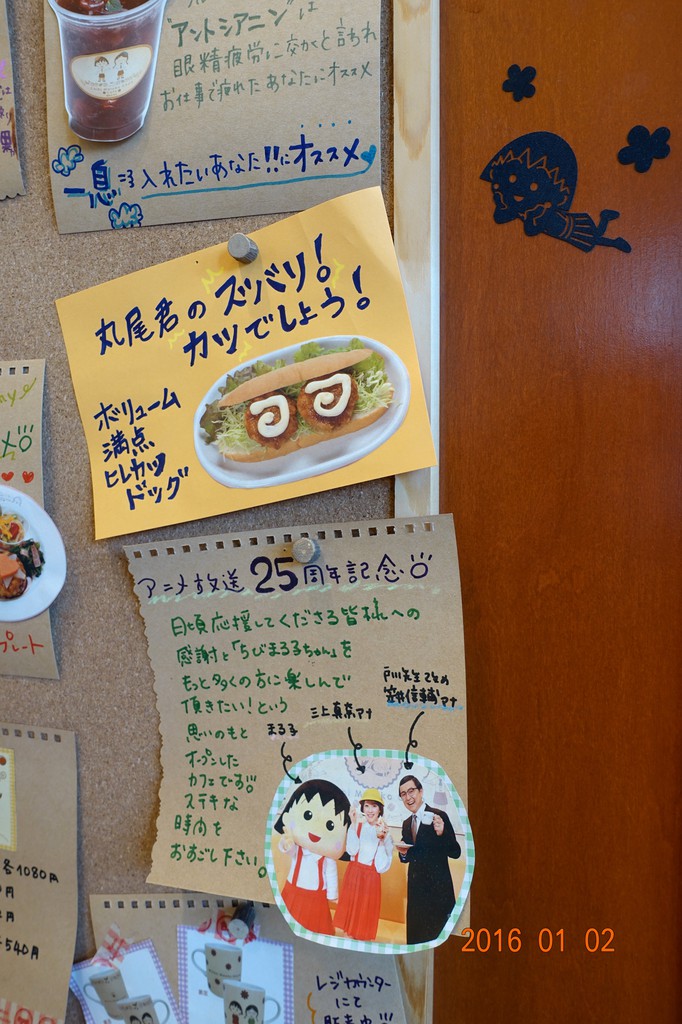 "アントシアニン"は
眼精疲労に交かと言われ
お仕事で疲れたあなたにオススメ
一息 入れたいあなた!!にオススメ
丸尾君のズバリ!
カツでしょう!
ボリューム
満点
ヒレカツ
ドッグ
アニメ放送25周年記念
日頃応援してくださる皆様への
感謝と「ちびまる子ちゃん」を
もっと多くの方に楽しんで
頂きたい!という
思いのもと
オープンした
カフェです!!
ステキな
時間を
おすごし下さい。
まる子
三上真奈アナ
戸川先生ことの
笠井信輔アナ
プレート
各1080円
円
540円
レジカウンター
にて
2016 01 02